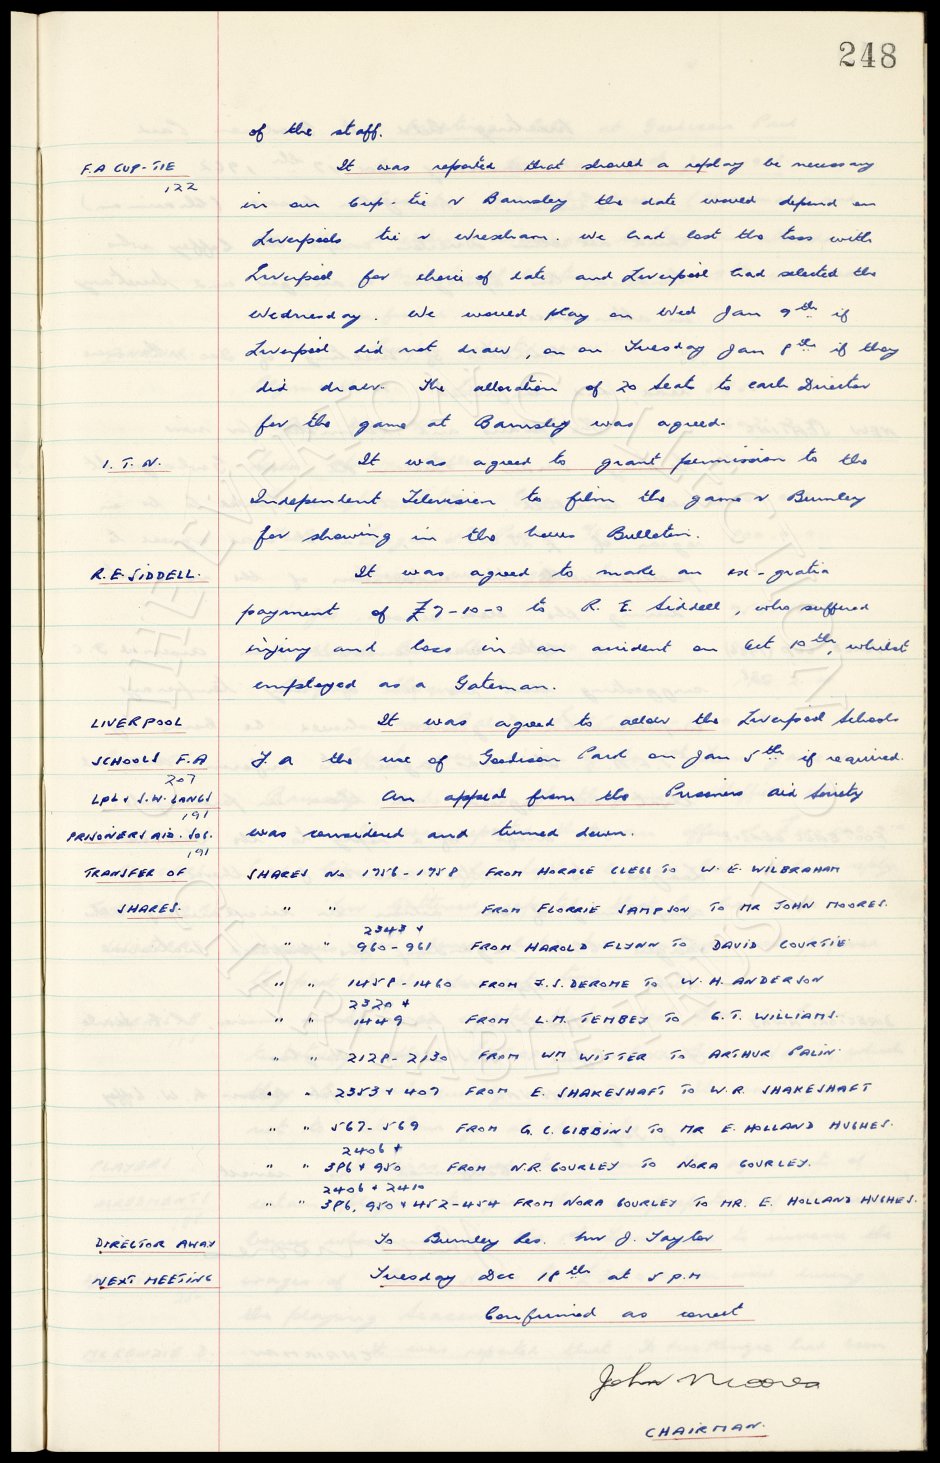 248
of the staff.
F.A CUP-TIE It was reported that should a replay be necessary
122
in our Cup-tie v Barnsley the date would depend on
Liverpools tie v Wrexham. We had lost the toss with
Liverpool for choice of date and Liverpool had selected the
Wednesday. We would play on Wed Jan 9th if
Liverpool did not draw, or on Tuesday Jan 8th if they
did draw. The allocation of 20 seats to each Director
for the game at Barnsley was agreed.
I.T.N. It was agreed to grant permission to the
Independent Television to film the game v Burnley
for showing in the News Bulletin.
R.E. SIDDELL. It was agreed to make an ex-gratia
payment of £7-10-0 to R. E. Siddell, who suffered
injury and loss in an accident on Oct 10th, whilst
employed as a Gateman.
LIVERPOOL It was agreed to allow the Liverpool Schools
SCHOOLS F.A F.A the use of Goodison Park on Jan 5th if required.
207
LPL & S.W. LANCS An appeal from the Prisoners Aid Society
191
PRISONERS AID. SOC. was considered and turned down.
191
TRANSFER OF SHARES No 1756-1758 FROM HORACE CLEGG TO W. E. WILBRAHAM
SHARES. " " FROM FLORRIE SAMPSON TO MR JOHN MOORES.
2343 &
" " 960-961 FROM HAROLD FLYNN TO DAVID COURTIE
" " 1458-1460 FROM J.S. DEROME TO W. H. ANDERSON
2320 &
" " 1449 FROM L.M. TEMBEY TO G.T. WILLIAMS.
" " 2128-2130 FROM WM WITTER TO ARTHUR PALIN.
" " 2353 & 407 FROM E. SHAKESHAFT TO W.R. SHAKESHAFT
" " 567-569 FROM G. C. GIBBINS TO MR E. HOLLAND HUGHES.
2406 &
" " 386 & 950 FROM N.R. GOURLEY TO NORA GOURLEY.
2406 & 2410
" " 386, 950 & 452-454 FROM NORA GOURLEY TO MR. E. HOLLAND HUGHES.
DIRECTOR AWAY To Burnley Res. Mr J. Taylor
NEXT MEETING Tuesday Dec 18th at 5 P.M
Confirmed as correct
John Moores
CHAIRMAN.